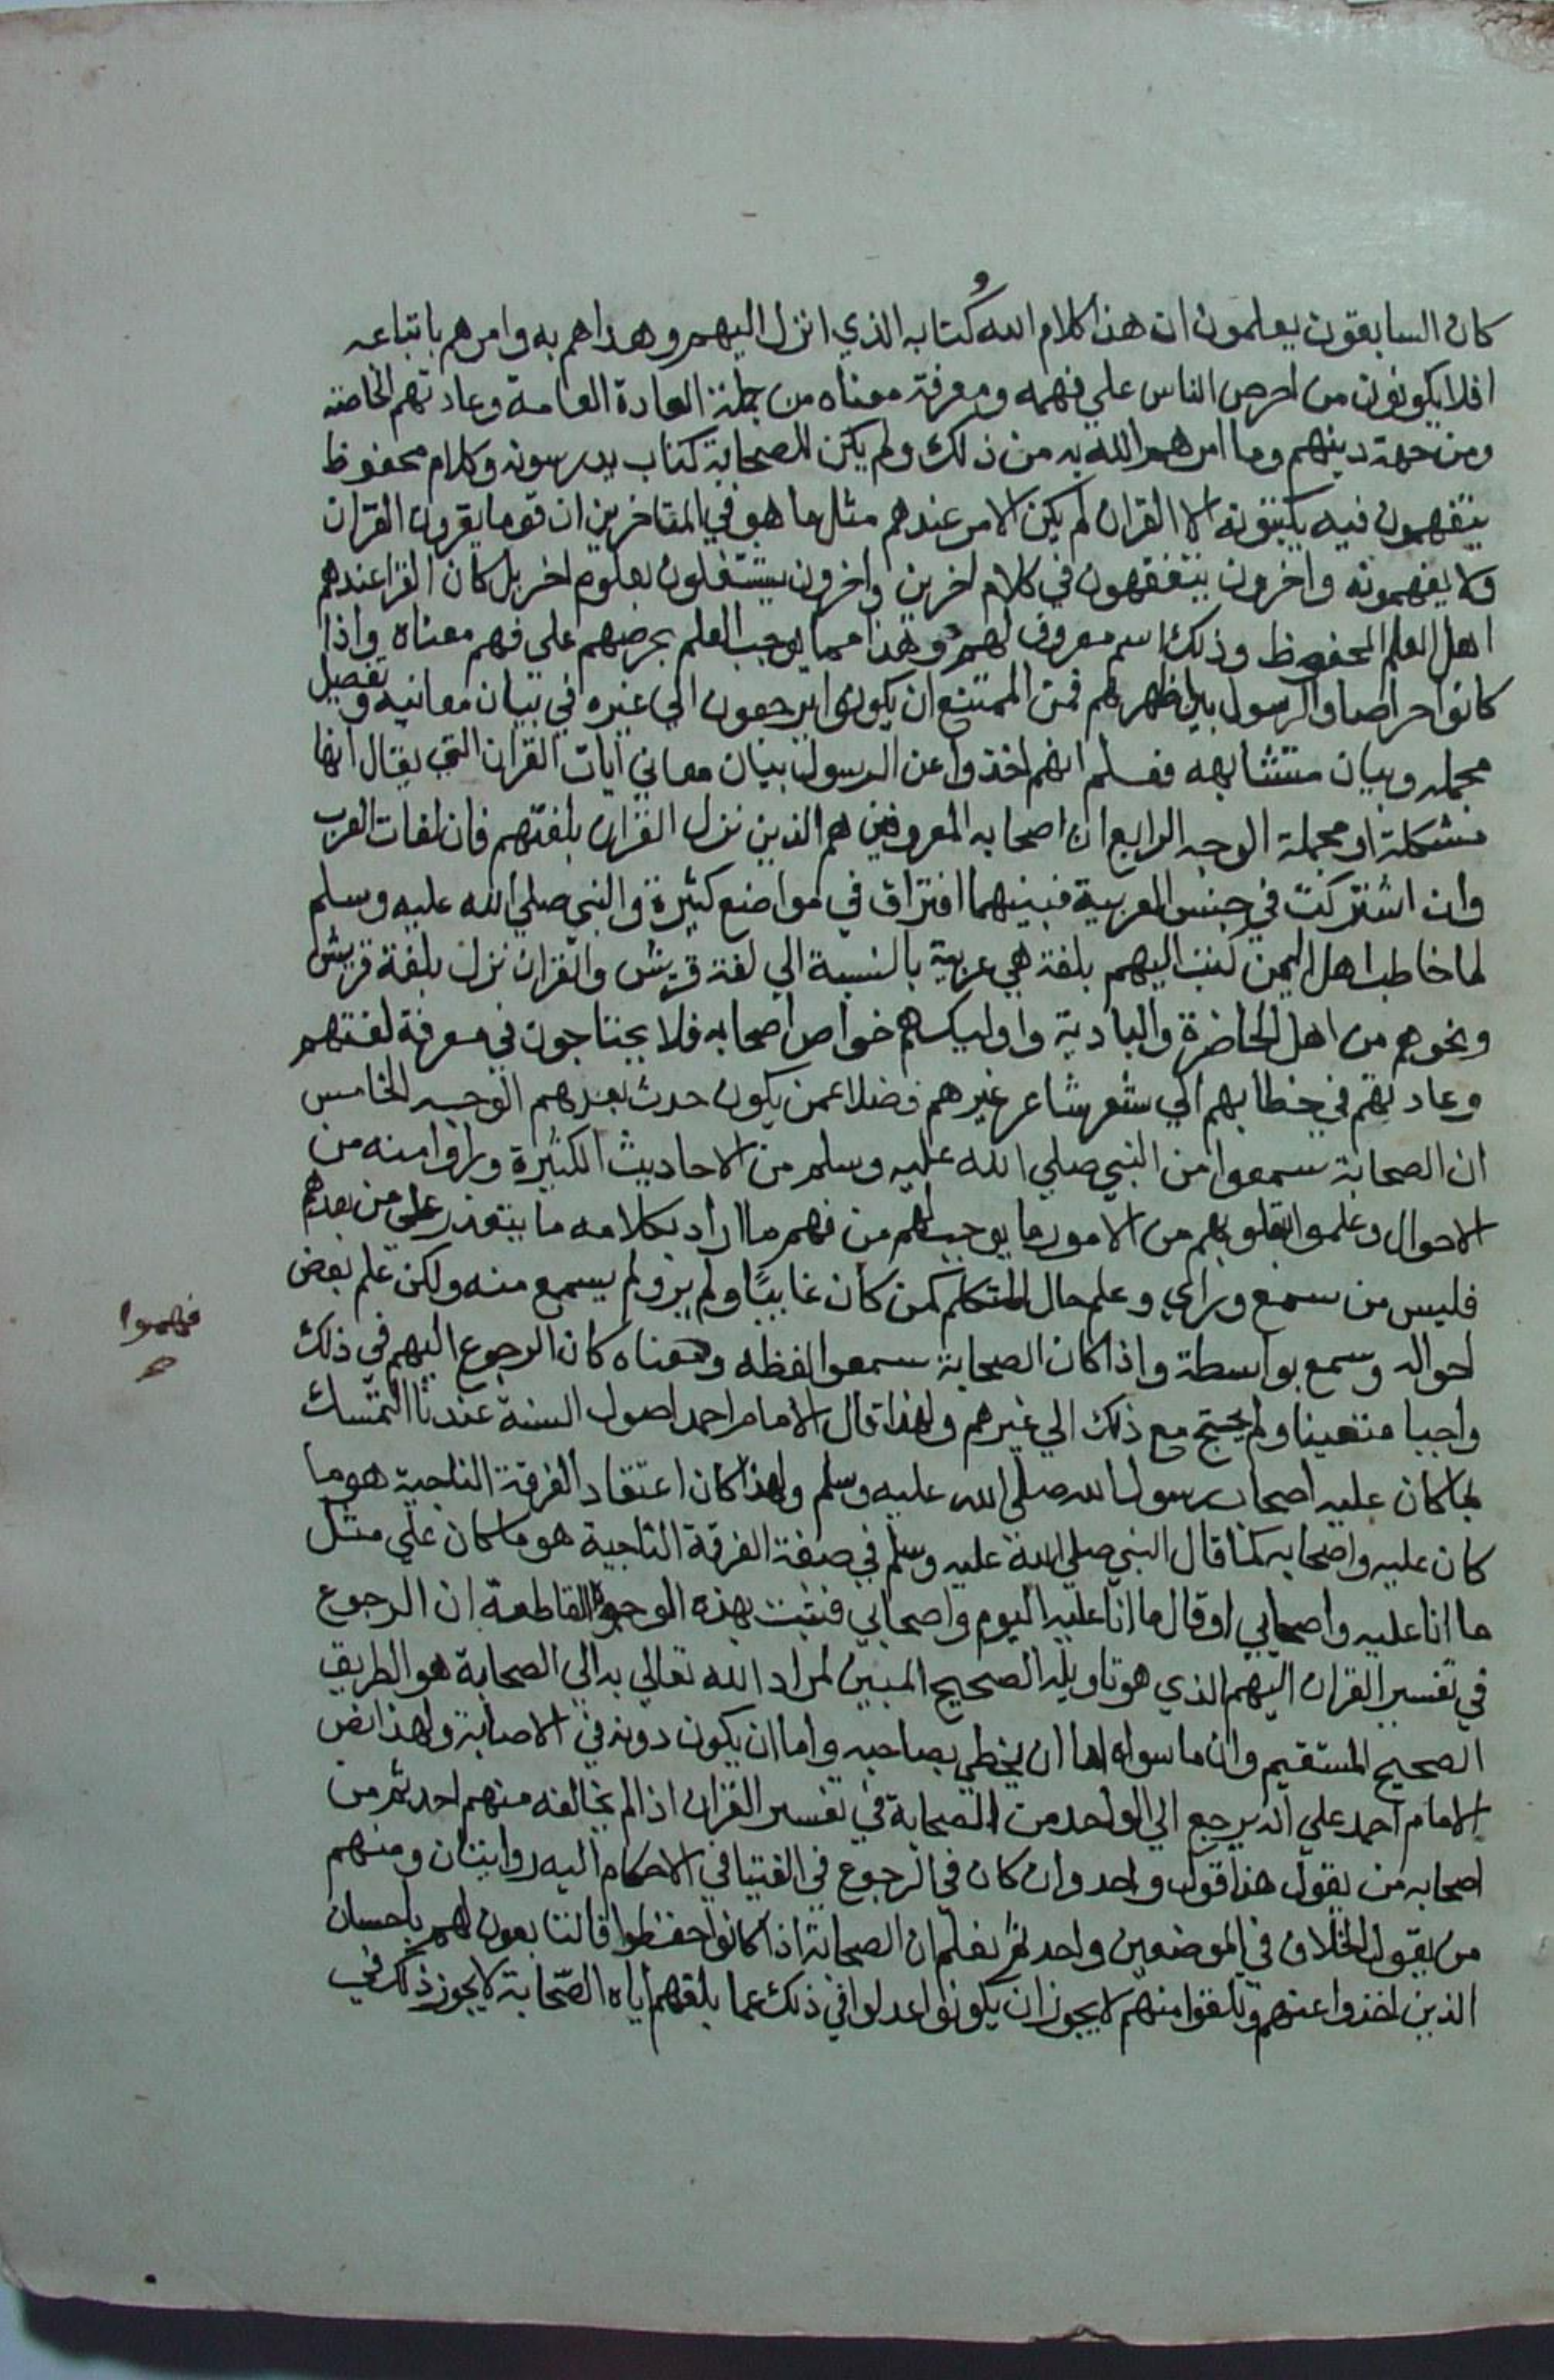 كان السابقون يعلمون ان هذا كلام الله وكتابه الذي انزل اليهم وهداهم به وامرهم باتباعه
افلا يكونون من احرص الناس علي فهمه ومعرفة معناه من جملة العادة العامة وعادتهم الخاصة
ومن جهة دينهم وما امرهم الله به من ذلك ولم يكن للصحابة كتاب يدرسونه وكلام محفوظ
يتفقهون فيه يكتبونه الا القران لم يكن الامر عندهم مثل ما هو في المتاخرين ان قوما يقرون القران
ولا يفهمونه واخرون يتفقهون في كلام اخرين واخرون يشتغلون بعلوم اخر بل كان القرا عندهم
اهل العلم المحفوظ وذلك اسم معروف لهم وهذا مما يوجب العلم بحرصهم علي فهم معناه واذا
كانوا حراصا والرسول بين اظهرهم فمن الممتنع ان يكونوا يرجعون الي غيره في بيان معانيه وتفصيل
مجمله وبيان متشابهه فعلم انهم اخذوا عن الرسول بيان معاني ايات القران التي يقال انها
مشكلة او مجملة الوجه الرابع ان اصحابه المعروفين هم الذين نزل القران بلغتهم فان لغات العرب
وان اشتركت في جنس العربية فبينهما افتراق في مواضع كثيرة والنبي صلي الله عليه وسلم
لما خاطب اهل اليمن كتب اليهم بلغة هي عربية بالنسبة الي لغة قريش والقران نزل بلغة قريش
ونحوهم من اهل الحاضرة والبادية واوليك هم خواص اصحابه فلا يحتاجون في معرفة لغتهم
وعادتهم في خطابهم الي شعر شاعر غيرهم فضلا عمن يكون حدث بعدهم الوجه الخامس
ان الصحابة سمعوا من النبي صلي الله عليه وسلم من الاحاديث الكثيرة وراوا منه من
الاحوال وعلموا بقلوبهم من الامور ما يوجب لهم من فهم ما اراد بكلامه ما يتعذر علي من بعدهم
فليس من سمع وراي وعلم حال المتكلم كمن كان غايبا ولم ير ولم يسمع منه ولكن علم بعض
احواله وسمع بواسطة واذا كان الصحابة سمعوا لفظه وفهموا معناه كان الرجوع اليهم في ذلك
واجبا متعينا ولم يحتج مع ذلك الي غيرهم ولهذا قال الامام احمد اصول السنة عندنا التمسك
بما كان عليه اصحاب رسول الله صلي الله عليه وسلم ولهذا كان اعتقاد الفرقة الناجية هو ما
كان عليه واصحابه كما قال النبي صلي الله عليه وسلم في صفة الفرقة الناجية هو ما كان علي مثل
ما انا عليه واصحابي او قال ما انا عليه اليوم واصحابي فثبت بهذه الوجوه القاطعة ان الرجوع
في تفسير القران اليهم الذي هو تاويله الصحيح المبين لمراد الله تعالي به الي الصحابة هو الطريق
الصحيح المستقيم وان ما سواه اما ان يخطي بصاحبه واما ان يكون دونه في الاصابة ولهذا نص
الامام احمد علي انه يرجع الي الواحد من الصحابة في تفسير القران اذا لم يخالفه منهم احد ثم من
اصحابه من يقول هذا قول واحد وان كان في الرجوع في الفتيا في الاحكام اليه روايتان ومنهم
من يقول الخلاف في الموضعين واحد ثم نعلم ان الصحابة اذا كانوا حفظوا فالتابعون لهم باحسان
الذين اخذوا عنهم وتلقوا منهم لا يجوز ان يكونوا عدلوا في ذلك عما بلغهم اياه الصحابة لا يجوز ذلك في
فهموا